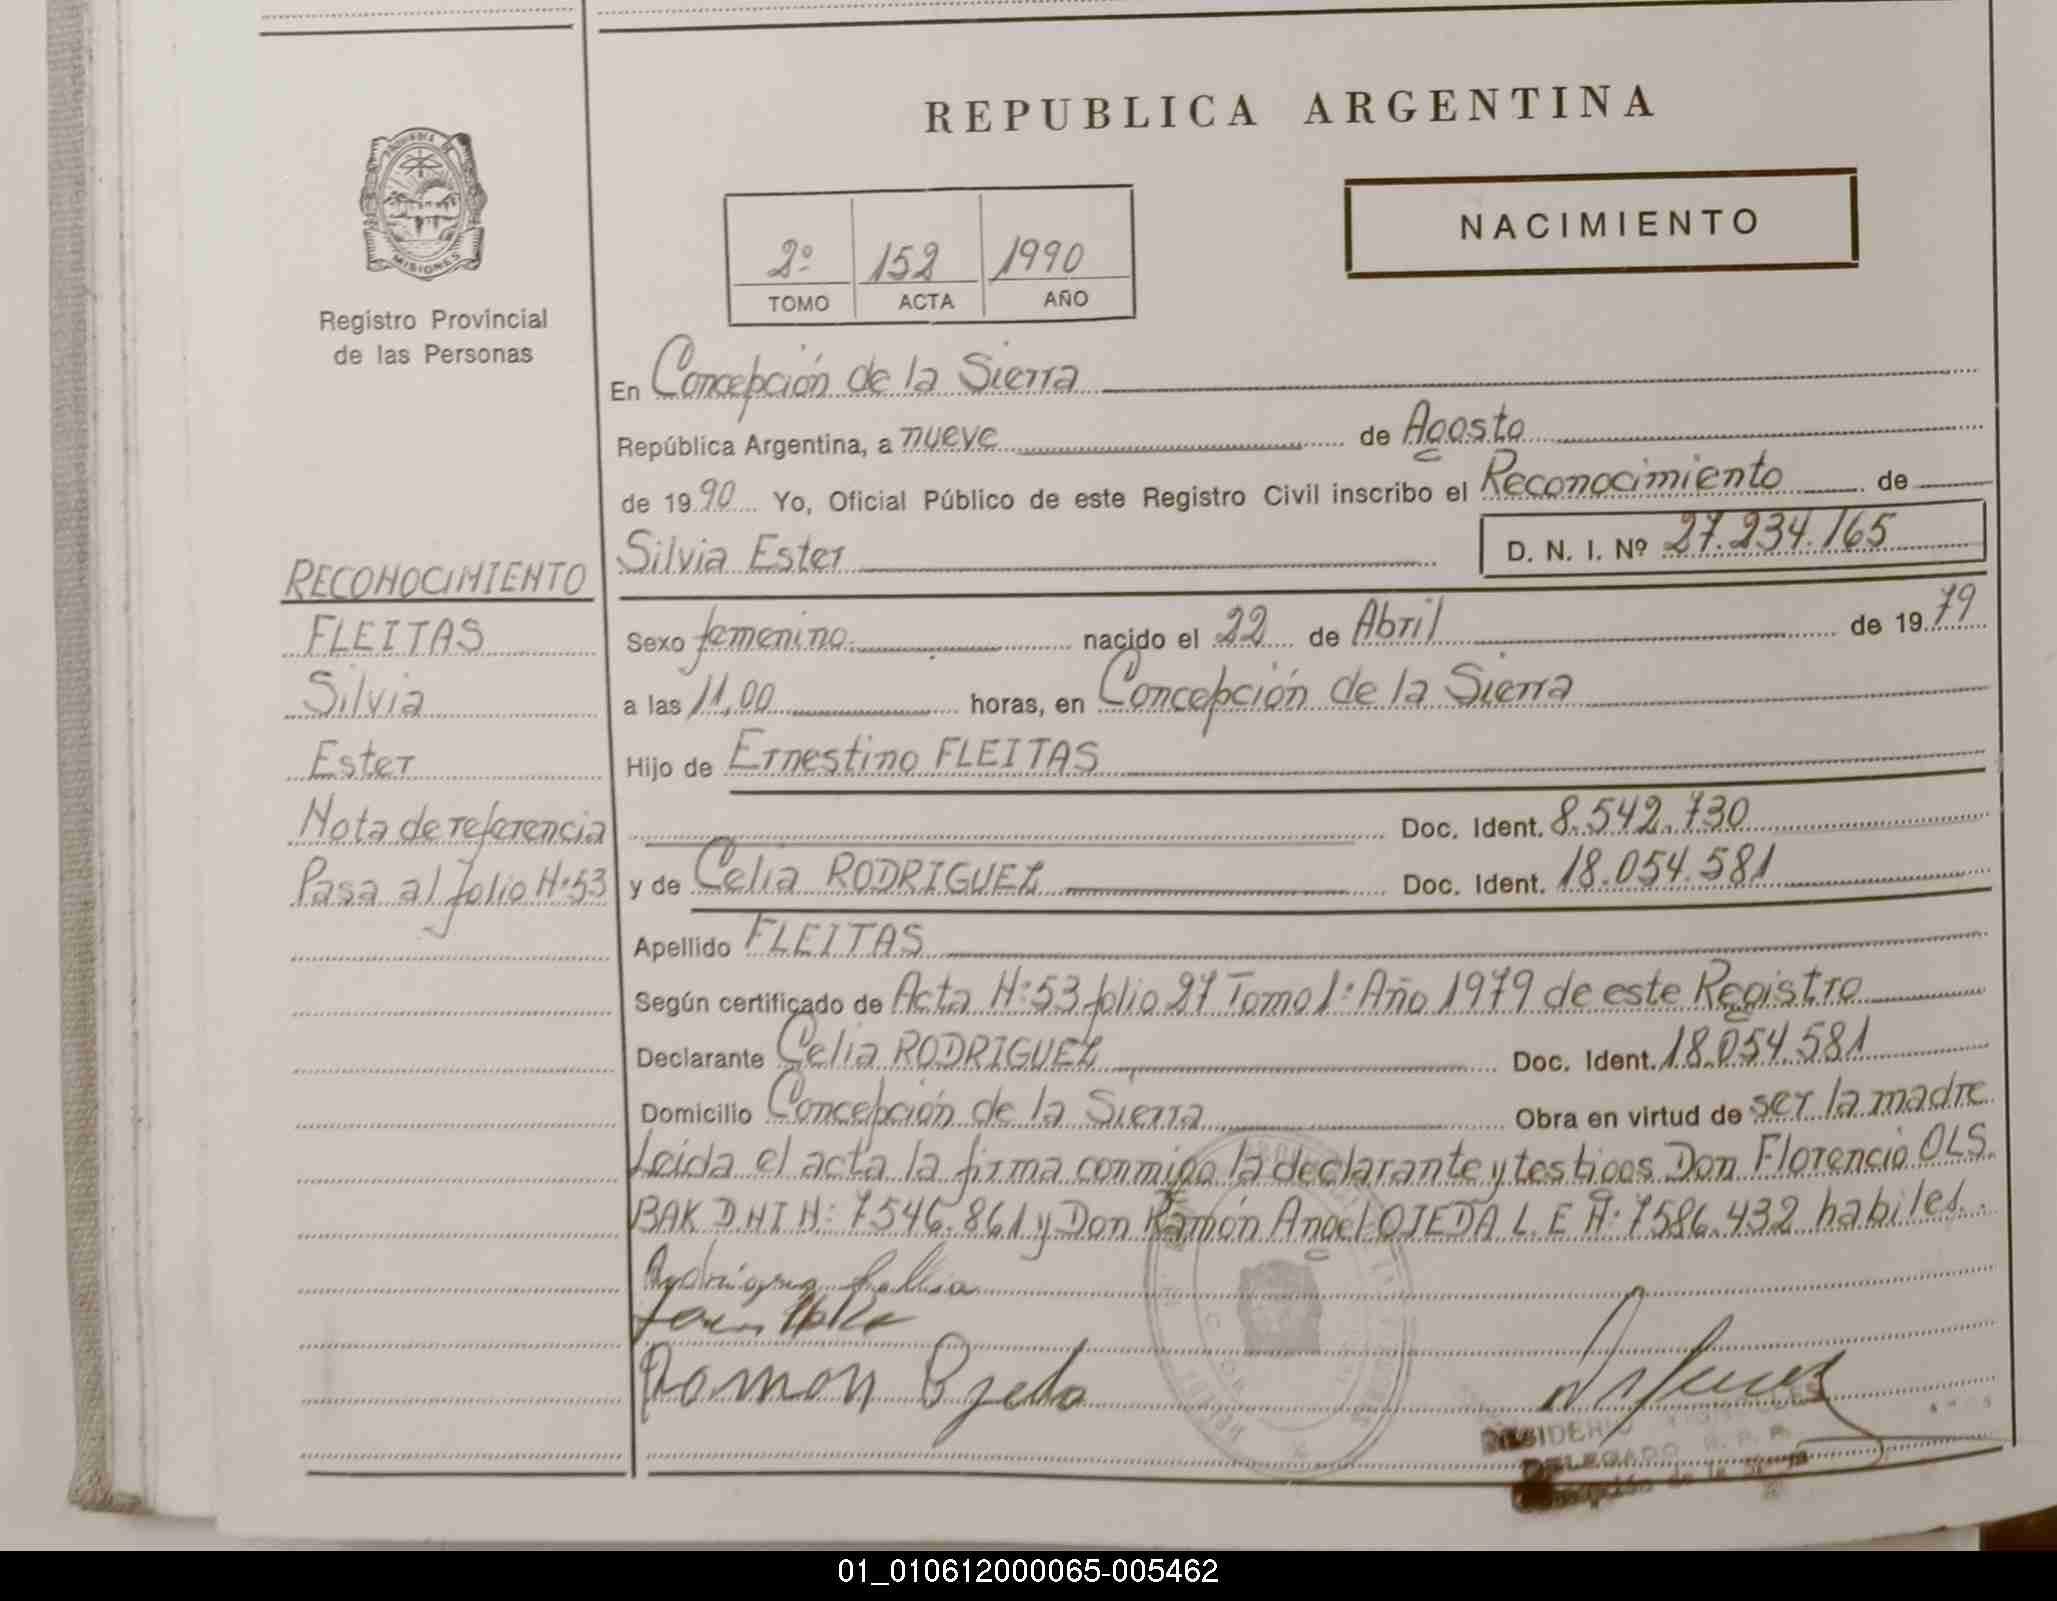 REPUBLICA ARGENTINA
NACIMIENTO
PROVINCIA DE
MISIONES
Registro Provincial
de las Personas
2º 152 1990
TOMO ACTA AÑO
En Concepción de la Sierra
República Argentina, a nueve de Agosto
de 1990 Yo, Oficial Público de este Registro Civil inscribo el Reconocimiento de
Silvia Ester D. N. I. Nº 27.234.165
RECONOCIMIENTO
FLEITAS
Silvia
Ester
Nota de referencia
Pasa al folio Nº 53
Sexo femenino nacido el 22 de Abril de 1979
a las 11,00 horas, en Concepción de la Sierra
Hijo de Ernestino FLEITAS
Doc. Ident. 8.542.730
y de Celia RODRIGUEZ Doc. Ident. 18.054.581
Apellido FLEITAS
Según certificado de Acta Nº 53 folio 27 Tomo 1º Año 1979 de este Registro
Declarante Celia RODRIGUEZ Doc. Ident. 18.054.581
Domicilio Concepción de la Sierra Obra en virtud de ser la madre
Leida el acta la firma conmigo la declarante y testigos Don Florencio OLS
BAK DNI Nº 7546.861 y Don Ramón Angel OJEDA L.E Nº 7586.432 habiles.
Rodriguez Cellia
Ramon Ojeda
DESIDERIO
DELEGADO R. P. P.
Concepción de la Sierra
01_010612000065-005462